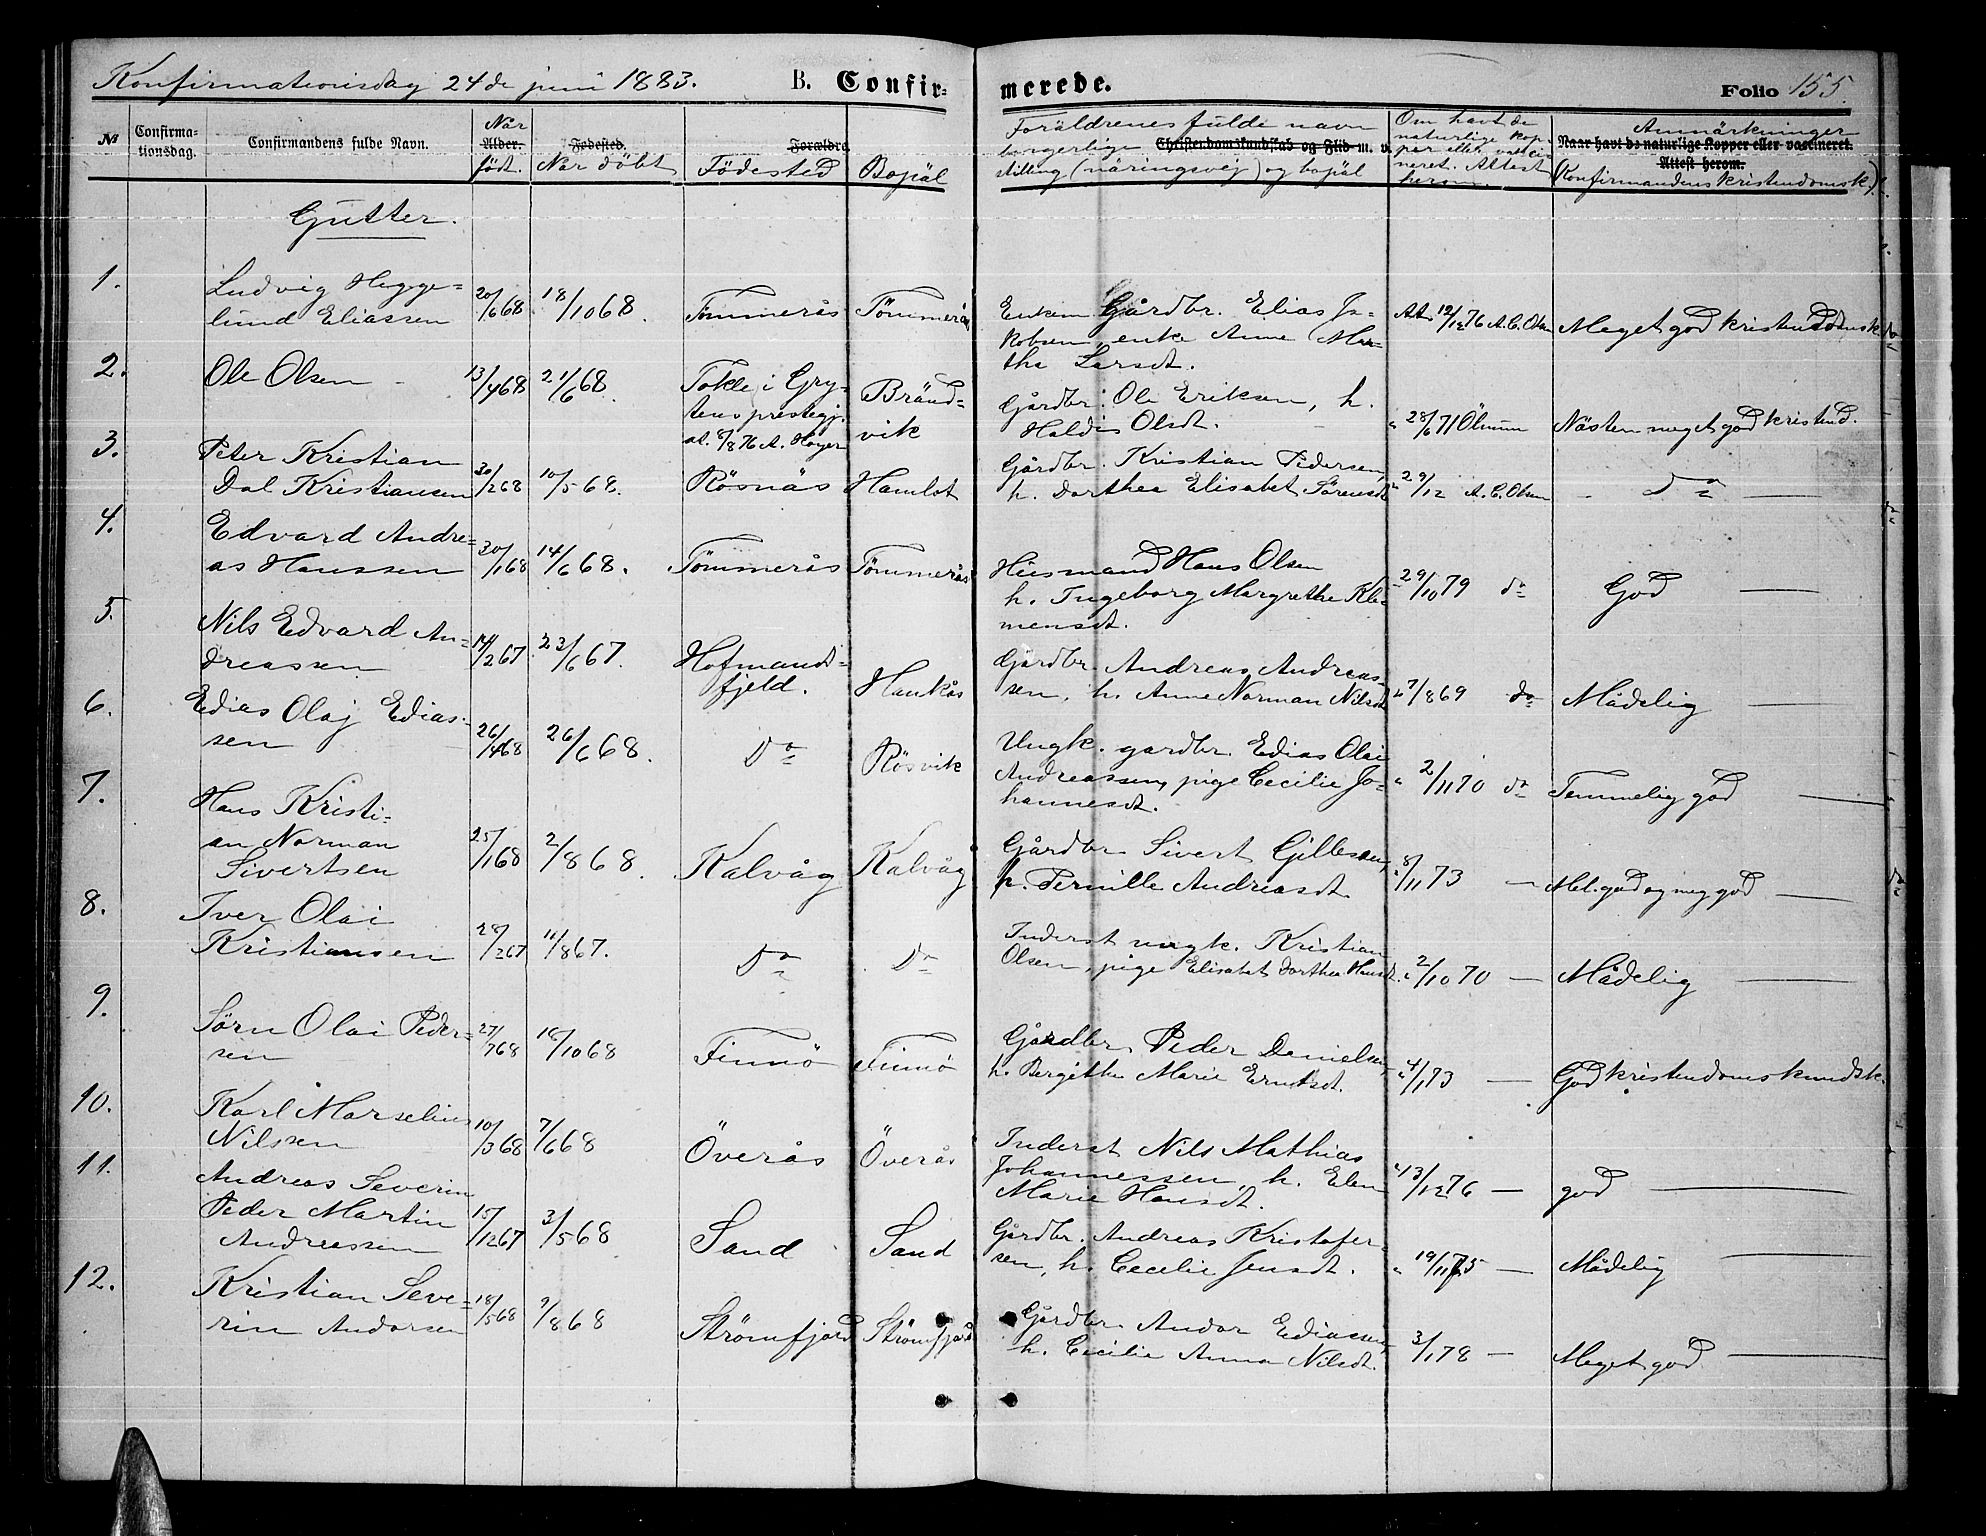 Konfirmationsdag 24de juni 1883. B. Confir-
merede. Folio 155
№ Confirma-
tionsdag.
Confirmandens fulde Navn.
När
Alder.
född.
Fødested.
När döbt
Forældre
Födested
Bopäl
Foräldrenes fulde navn
borgerlige Christendomskundskab og Flid m. v.
stilling (näringsvej) og bopäl
Om havt de
naturlige kop-
per eller vacci-
neret. Attest
herom.
Anmärkninger
Naar havt de naturlige Kopper eller vaccineret.
Attest herom.
(Konfirmandens kristendomsk.)
Gutter.
1.
Ludvig Hegge-
lund Eliassen
20/6 68
18/10 68.
Tömmerås
Tömmerås
Enken Gårdbr. Elias Ja-
kobsen, enke Anne Mar-
tha Larsdt.
Att. 19/12 76 A.C. Olsen
Meget god kristendomsk.
2.
Ole Olsen
13/4 68
21/6 68.
Tokle i Gry-
tens prestegj.
at. 8/8 76 A. Hoyer
Bränd-
vik
Gårdbr. Ole Eriksen, h.
Haldis Olsdt.
" 28/6 71
Nästen meget god kristend.
3.
Peter Kristian
Dal Kristiansen
30/2 68
10/5 68.
Rösnäs
Hamlot
Gårdbr. Kristian Pedersen,
h. Dorthea Elisabet Sörensdt.
" 29/12 A.C. Olsen
Do
4.
Edvard Andre-
as Hanssen
30/1 68
14/6 68.
Tömmerås
Tömmerås
Husmand Hans Olsen
h. Ingeborg Margrethe Kle-
mensdt.
29/10 79 do
God
5.
Nils Edvard An-
dreassen
14/2 67
23/6 67.
Hofmands-
fjeld.
Haukås
Gårdbr. Andreas Andreas-
sen, h. Anne Norman Nilsdt.
7/8 69 do
Mådelig
6.
Edias Olaj Edias-
sen
26/4 68
26/6 68.
Do
Rösvik
Ungk. gardbr. Edias Olai
Andreassen, pige Cecilie Jo-
hannesdt.
" 2/11 70 do
Temmelig god
7.
Hans Kristi-
an Norman
Sivertsen
25/1 68
2/8 68.
Kalvåg
Kalvåg
Gårdbr Sivert Gillesen,
h. Pernille Andreasdt
8/11 73 —
Mel. god og meg. god
8.
Iver Olai
Kristiansen
28/2 67
11/8 67.
Do
Do
Inderst ungk. Kristian
Olsen, pige Elisabet Dorthea Hansdt.
" 2/10 70 —
Mådelig
9.
Sörn Olai Peder-
sen
27/7 68
18/10 68
Finnö
Finnö
Gårdbr. Peder Danielsen,
h. Bergithe Marie Erntsdt.
" 4/1 73 —
God kristendomskundsk.
10.
Karl Marselius
Nilssen
10/3 68
7/6 68
Överås
Överås
Inderst Nils Mathias
Johannessen, h. Elen
Marie Hansdt.
" 13/12 76 —
god
11.
Andreas Severin
Peder Martin
Andreassen
15/12 67
3/5 68
Sand
Sand
Gårdbr. Andreas Kristofer-
sen, h. Cecilie Jensdt.
" 19/11 75 —
Mådelig
12.
Kristian Seve-
rin Andorsen
18/5 68
9/8 68
Strömfjord
Strömfjord
Gårdbr Andor Ediassen,
h. Cecilie Anna Nilsdt.
3/1 78 —
Meget god